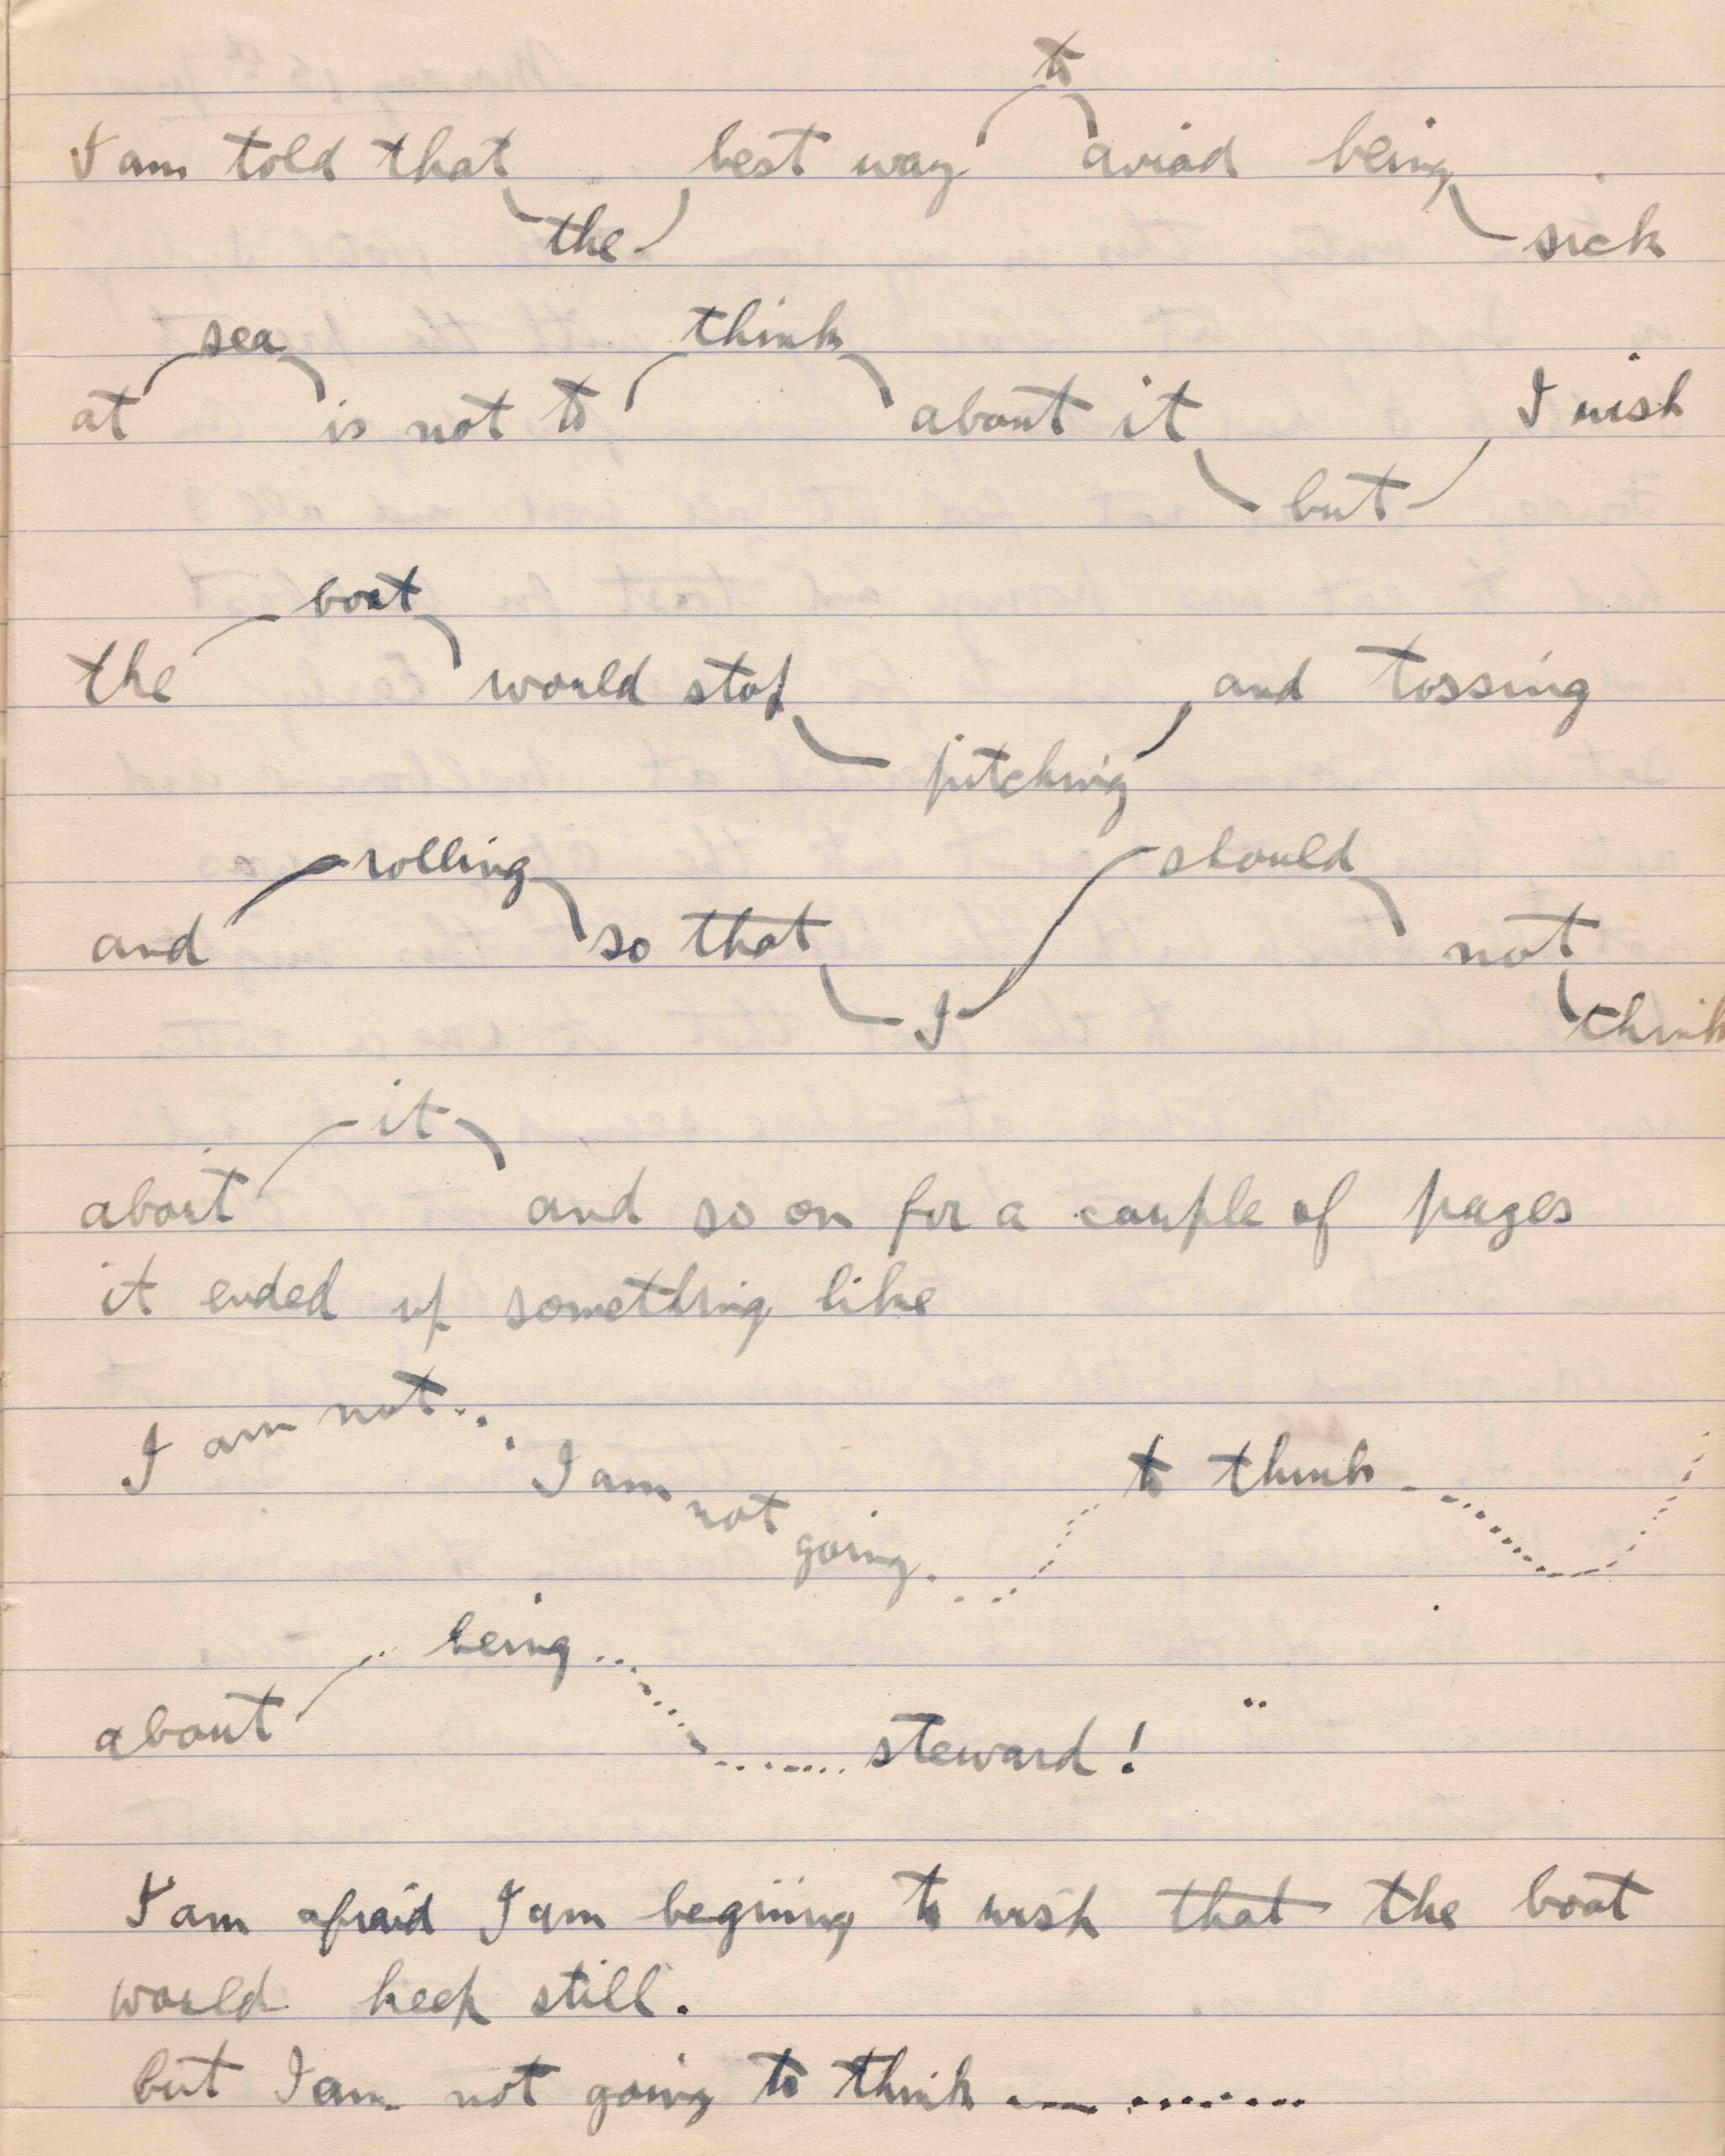 I am told that the best way to aviod being sick
at sea is not to think about it but I wish
the boat would stop pitching and tossing
and rolling so that I should not think
about it and so on for a couple of pages
it ended up something like
I am not... I am not going... to think
about being .......... steward!
I am afraid I am begiiing to wish that the boat
would keep still.
but I am not going to think — .......